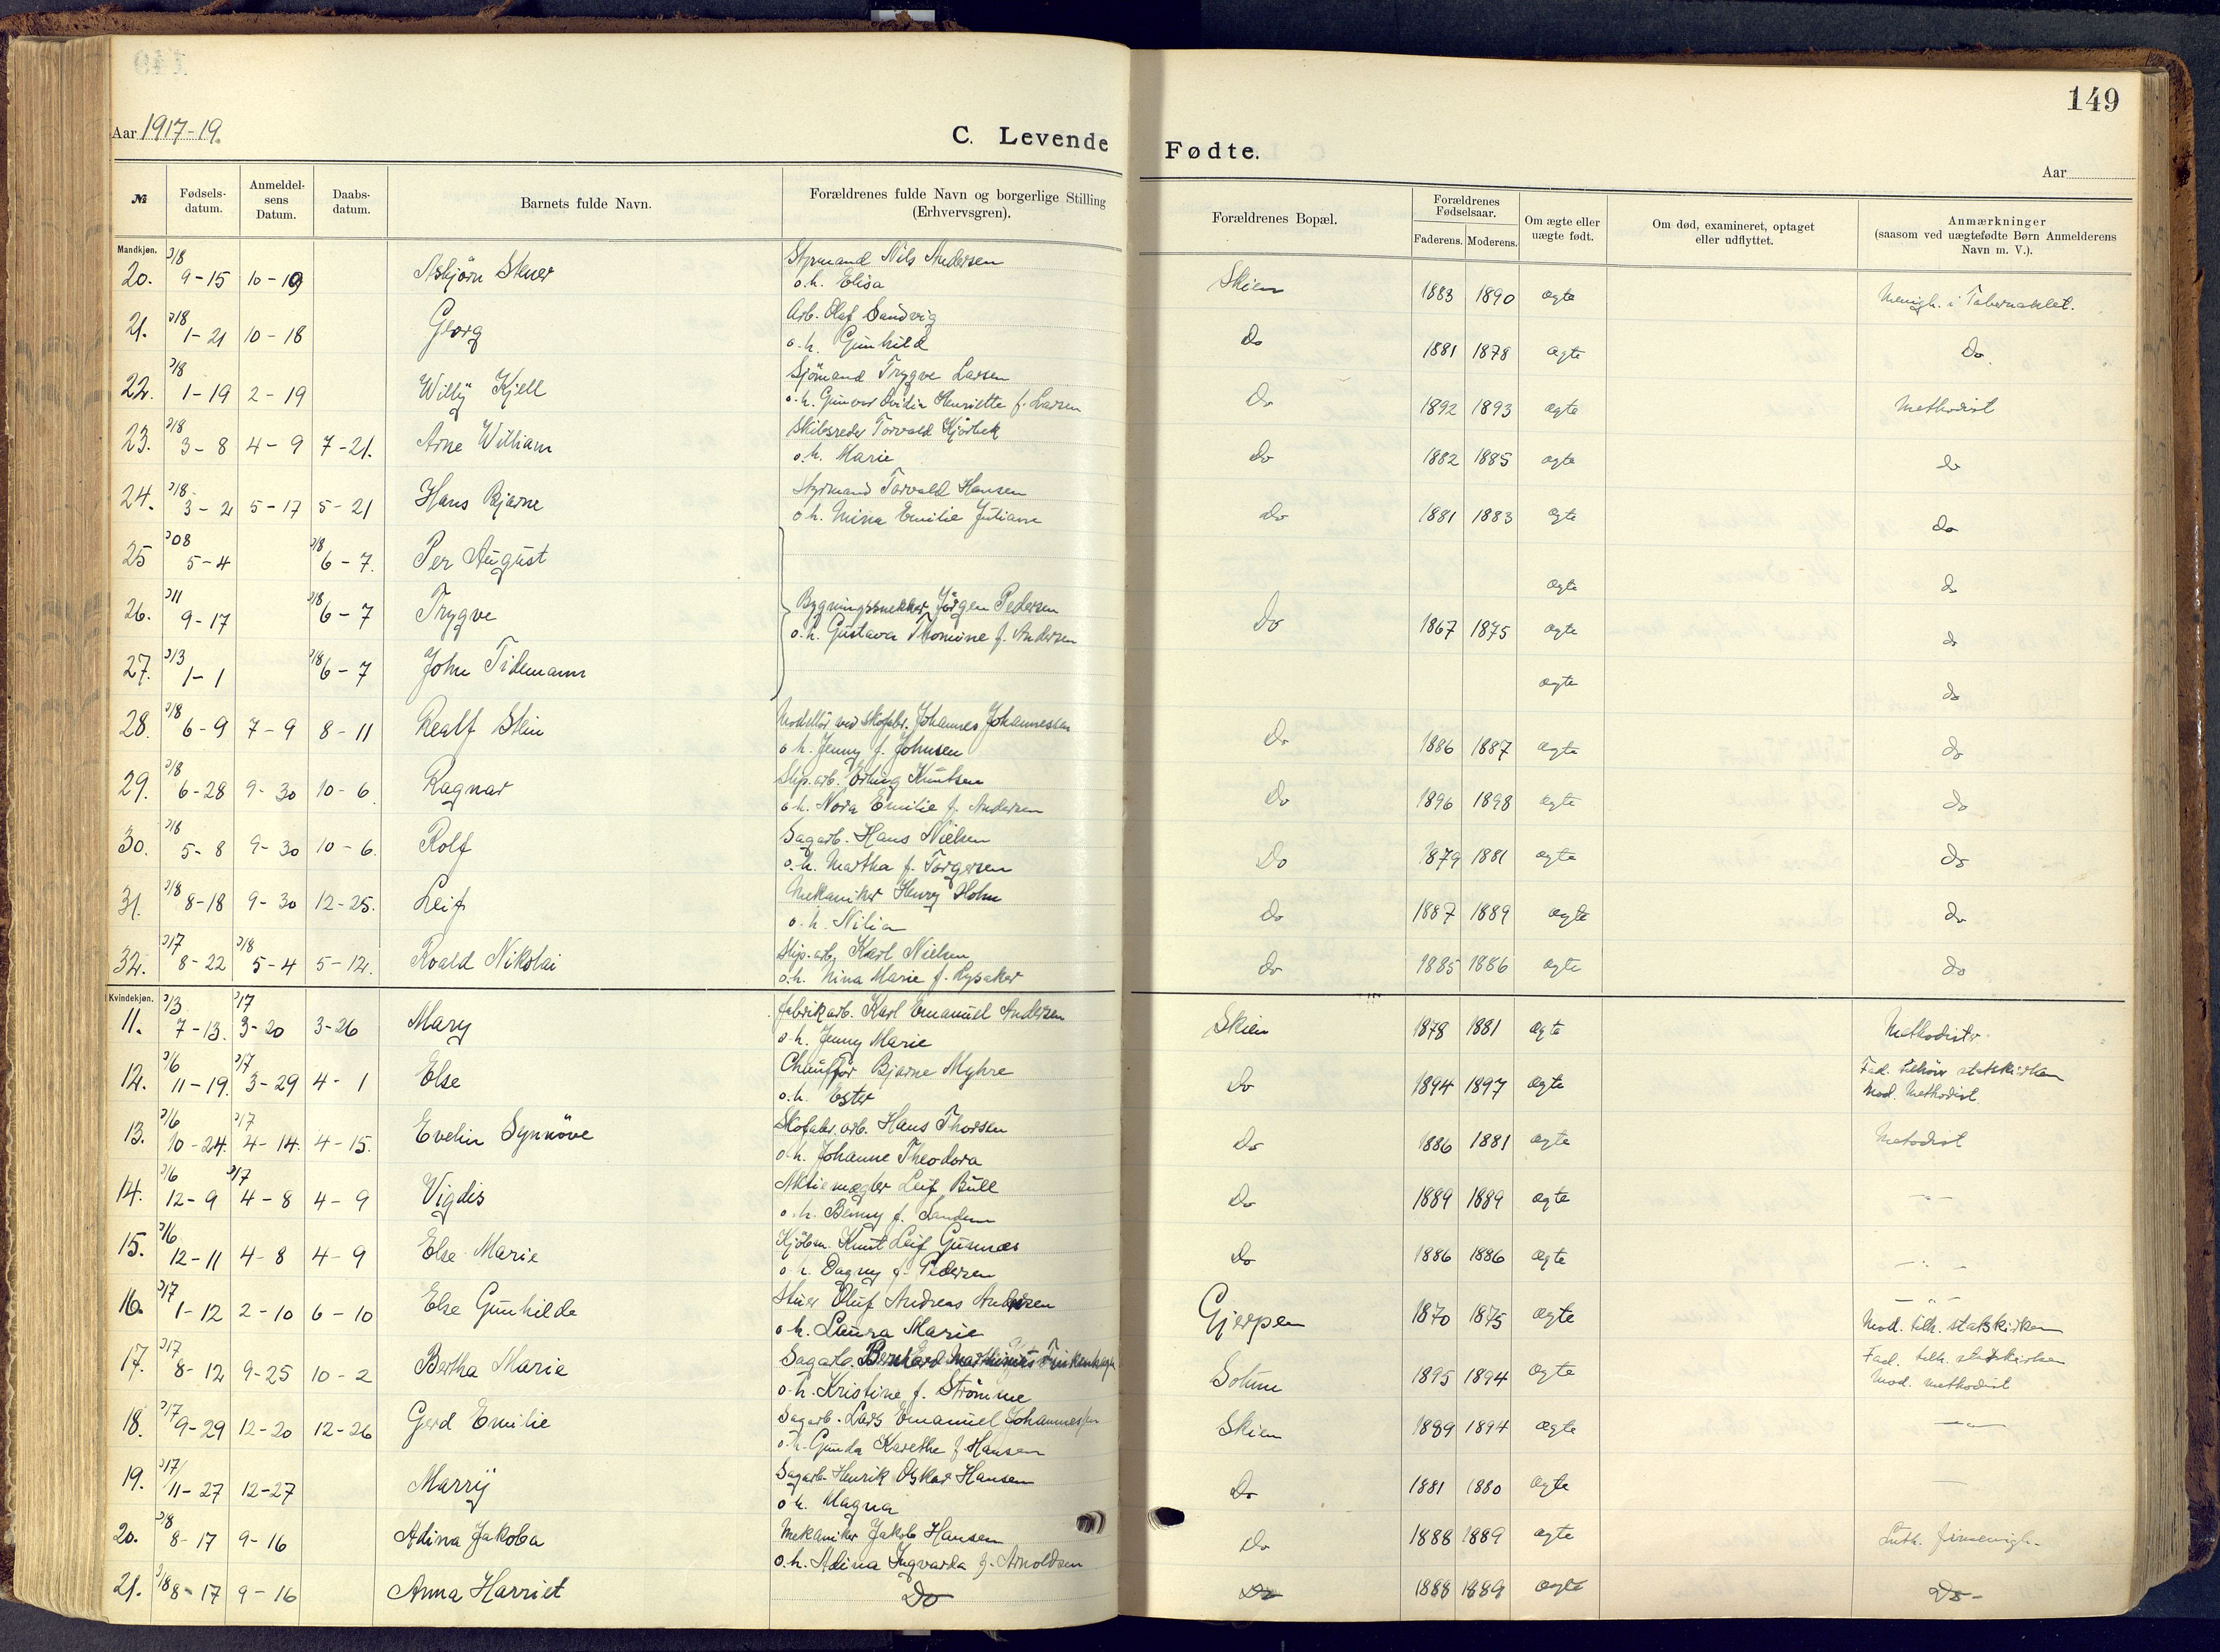 149
Aar 1917-19.
C. Levende Fødte.
Aar
№
Fødselsdatum.
Anmeldelsens Datum.
Daabsdatum.
Barnets fulde Navn.
Forældrenes fulde Navn og borgerlige Stilling (Erhvervsgren).
Forældrenes Bopæl.
Forældrenes Fødselsaar.
Faderens. Moderens.
Om ægte eller uægte født.
Om død, examineret, optaget eller udflyttet.
Anmærkninger (saasom ved uægtefødte Børn Anmelderens Navn m. V.).
Mandkjøn.
20. 9-15 10-19 Asbjörn Styrmand Nils Andersen Skien 1883 1890 ægte Menigh. i Tabernaklet.
o.h. Elisa
21. 1-21 10-18 Georg Arb. Olaf Sandvig Do 1881 1878 ægte Do.
o.h. Gunhild
22. 1-19 2-19 Willy Kjell Sjömand Trygve Larsen Do 1892 1893 ægte Methodist
o.h. Henriette f. Larsen
23. 3-8 4-9 7-21. Arne William Skibsreder Torvald Kjørbek Do 1882 1885 ægte do
o.h. Marie
24. 3-21 5-17 5-21 Hans Bjarne Styrmand Torvald Hansen do 1881 1883 ægte do
o.h. Mina Emilie Juliane
25 5-4 6-7. Per August ægte do
26. 9-17 6-7 Trygve Bygningssnekker Jörgen Pedersen Do 1867 1875 ægte do
o.h. Gustava Thomine f. Andersen
27. 1-1 6-7 John Tidemann ægte do
28. 6-9 7-9 8-11 Realf Stein Modellör ved Skofabr. Johannes Johannessen Do 1886 1887 ægte do
o.h. Jenny f. Johnsen
29. 6-28 9-30 10-6 Ragnar Slip.arb. Erling Knutsen Do 1896 1898 ægte do
o.h. Nora Emilie f. Andersen
30. 5-8 9-30 10-6. Rolf Sagarb. Hans Nielsen Do 1879 1881 ægte do
o.h. Martha f. Torgersen
31. 8-18 9-30 12-25. Leif Mekaniker Henry Holm Do 1887 1889 ægte do
o.h. Nilia
32. 8-22 5-4 5-12. Roald Nikolai Slip.arb. Karl Nielsen do 1885 1886 ægte do
o.h. Nina Marie f. Rysaker
Kvindekjøn.
11. 7-13. 3-20 3-26 Mary fabrikarb. Karl Emanuel Andersen Skien 1878 1881 ægte Methodister
o.h. Jenny Marie
12. 11-19. 3-29 4-1 Else Chauffør Bjarne Myhre Do 1894 1897 ægte Fad. tilhører statskirken
o.h. Ester Mod. Methodist.
13. 10-24. 4-14. 4-15. Evelin Synnöve Skofabr.arb. Hans Thorsen Do 1886 1881 ægte Metodist
o.h. Johanne Theodora
14. 12-9 4-8 4-9 Vigdis Aktiemægler Leif Bull Do 1889 1889 ægte -"-
o.h. Benny f.
15. 12-11 4-8 4-9 Else Marie Kjöbm. Knut Leif Gusnæs Do 1886 1886 ægte -"-
o.h. Dagny f. Pedersen
16. 1-12 2-10 6-10 Else Gunhilde Oluf Andreas Andersen Gjerpen 1870 1875 ægte -"-
o.h. Laura Marie Mod. tilh. statskirken
17. 8-12 9-25 10-2 Bertha Marie Sagarb. Bernhard Solum 1895 1894 ægte Fad. tilh. statskirken
o.h. Kristine f. Strömme Mod. methodist
18. 9-29 12-20 12-26 Gerd Emilie Sagarb. Lars Emanuel Johannessen Skien 1889 1894 ægte
o.h. Gunda Karethe f. Hansen
19. 11-27 12-27 Marrij Sagarb. Henrik Oskar Hansen Do 1881 1880 ægte
o.h. Magna
20. 8-17 9-16 Adina Jakoba Mekaniker Jakob Hansen Do 1888 1889 ægte Luth. frimenigh.
o.h. Adina Ingvarda f. Arnoldsen
21. 8-17 9-16 Anna Harriet Do Do 1888 1889 ægte Do-